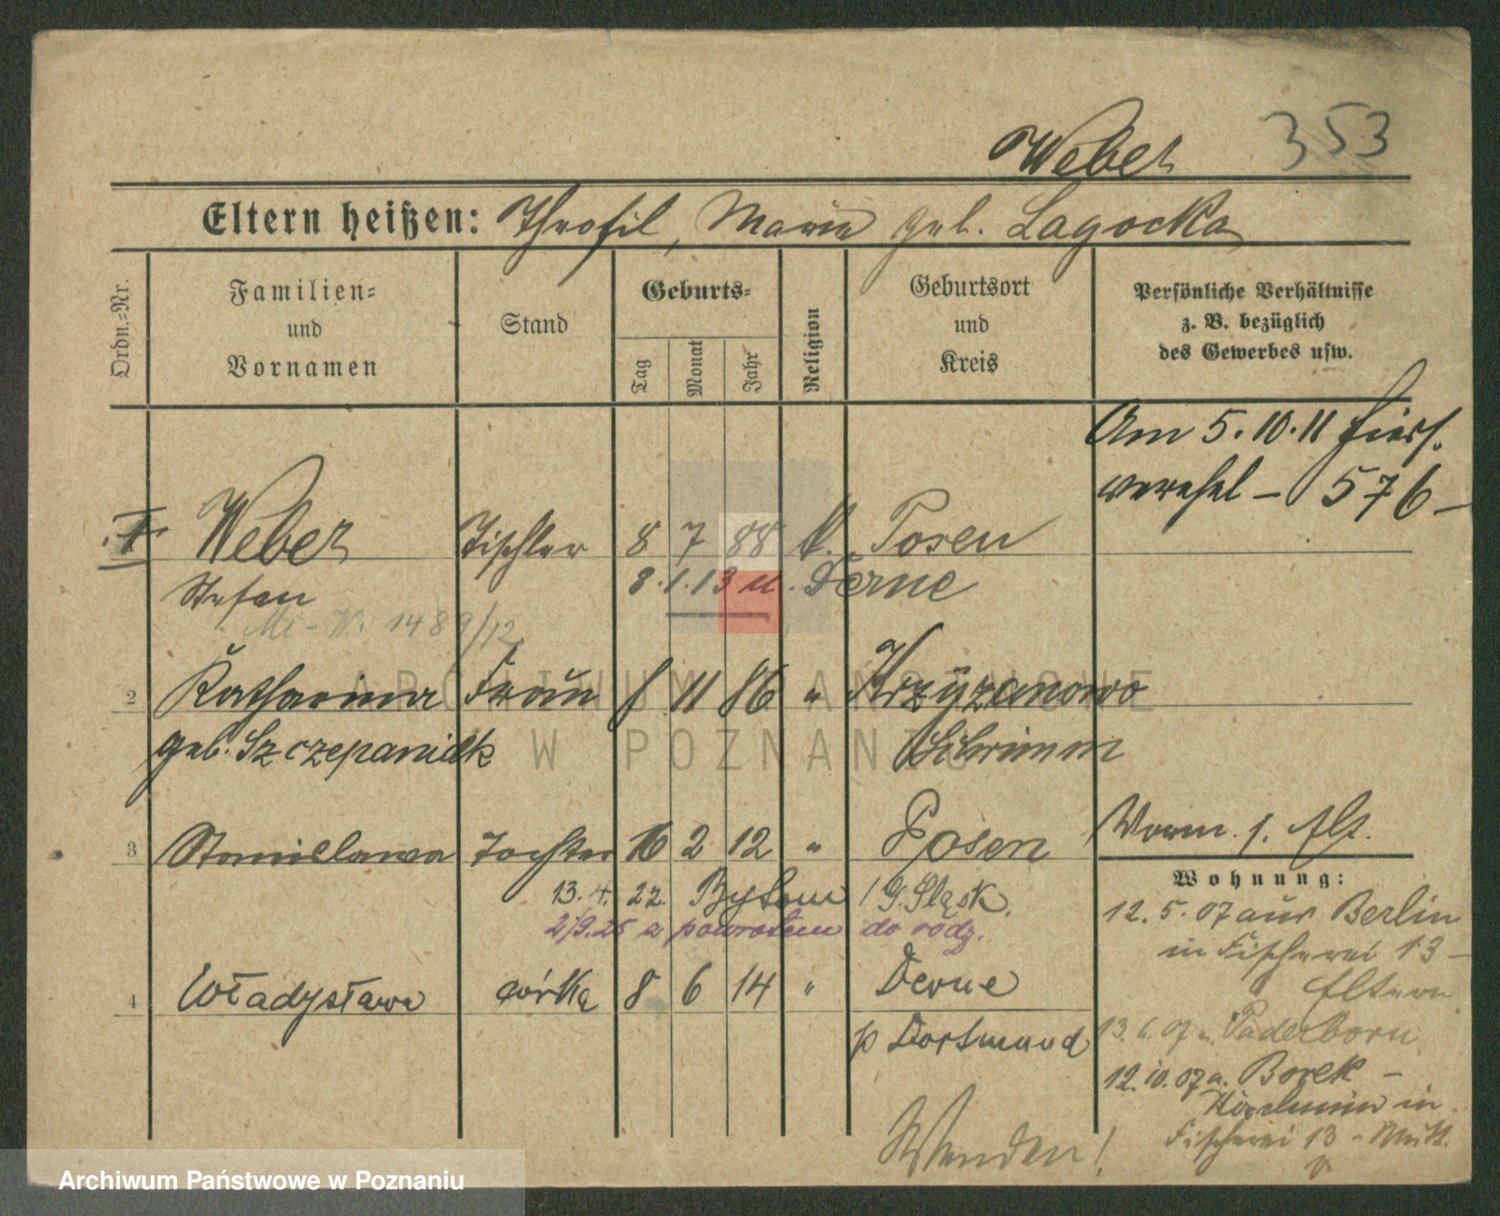 Weber 353
Eltern heißen: Theofil, Marie geb. Lagocka
Ordn.=Nr.
Familien=
und
Vornamen
Stand
Geburts=
Tag
Monat
Jahr
Religion
Geburtsort
und
Kreis
Persönliche Verhältnisse
z. B. bezüglich
des Gewerbes usw.
Am 5.10.11 hies.
576
1 Weber Tischler 8 7 88 k. Posen
Stefan 8.1.13 u. Derne
1489/12
2 Katharina Frau 8 11 86 " Krzyżanowo
geb. Szczepaniak Schrimm
3 Stanislawa Tochter 16 2 12 " Posen
Wohnung:
13.4. 22. Bytom / G. Śląsk.
2/9.25 z powrotem do rodz.
4 Władysława córka 8 6 14 " Derne
p Dortmund
12.5.07 aus Berlin
in Fischerei 13 -
Eltern
13.6.07 n. Paderborn
12.10.07 a. Borek -
in
Fischerei 13 - Mutt.
Wenden!
ARCHIWUM PAŃSTWOWE
W POZNANIU
Archiwum Państwowe w Poznaniu